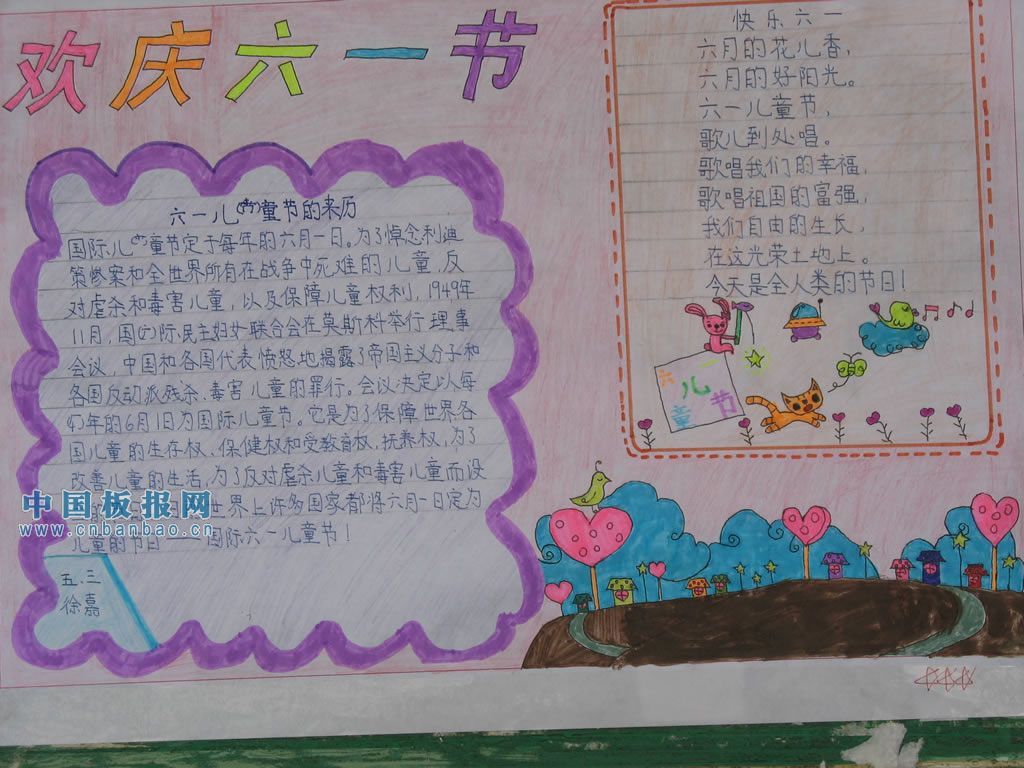 欢庆六一节
六一儿童节的来历
国际儿童节定于每年的六月一日。为了悼念利迪
策惨案和全世界所有在战争中死难的儿童，反
对虐杀和毒害儿童，以及保障儿童权利，1949年
11月，国际民主妇女联合会在莫斯科举行理事
会议，中国和各国代表愤怒地揭露了帝国主义分子和
各国反动派残杀、毒害儿童的罪行。会议决定以每
年的6月1日为国际儿童节。它是为了保障世界各
国儿童的生存权、保健权和受教育权，抚养权，为了
改善儿童的生活，为了反对虐杀儿童和毒害儿童而设
世界上许多国家都将六月一日定为
儿童的节日——国际六一儿童节！
五.三
徐嘉
中国板报网
www.cnbanbao.cn
快乐六一
六月的花儿香，
六月的好阳光。
六一儿童节，
歌儿到处唱。
歌唱我们的幸福，
歌唱祖国的富强，
我们自由的生长，
在这光荣土地上。
今天是全人类的节日！
六一儿童节